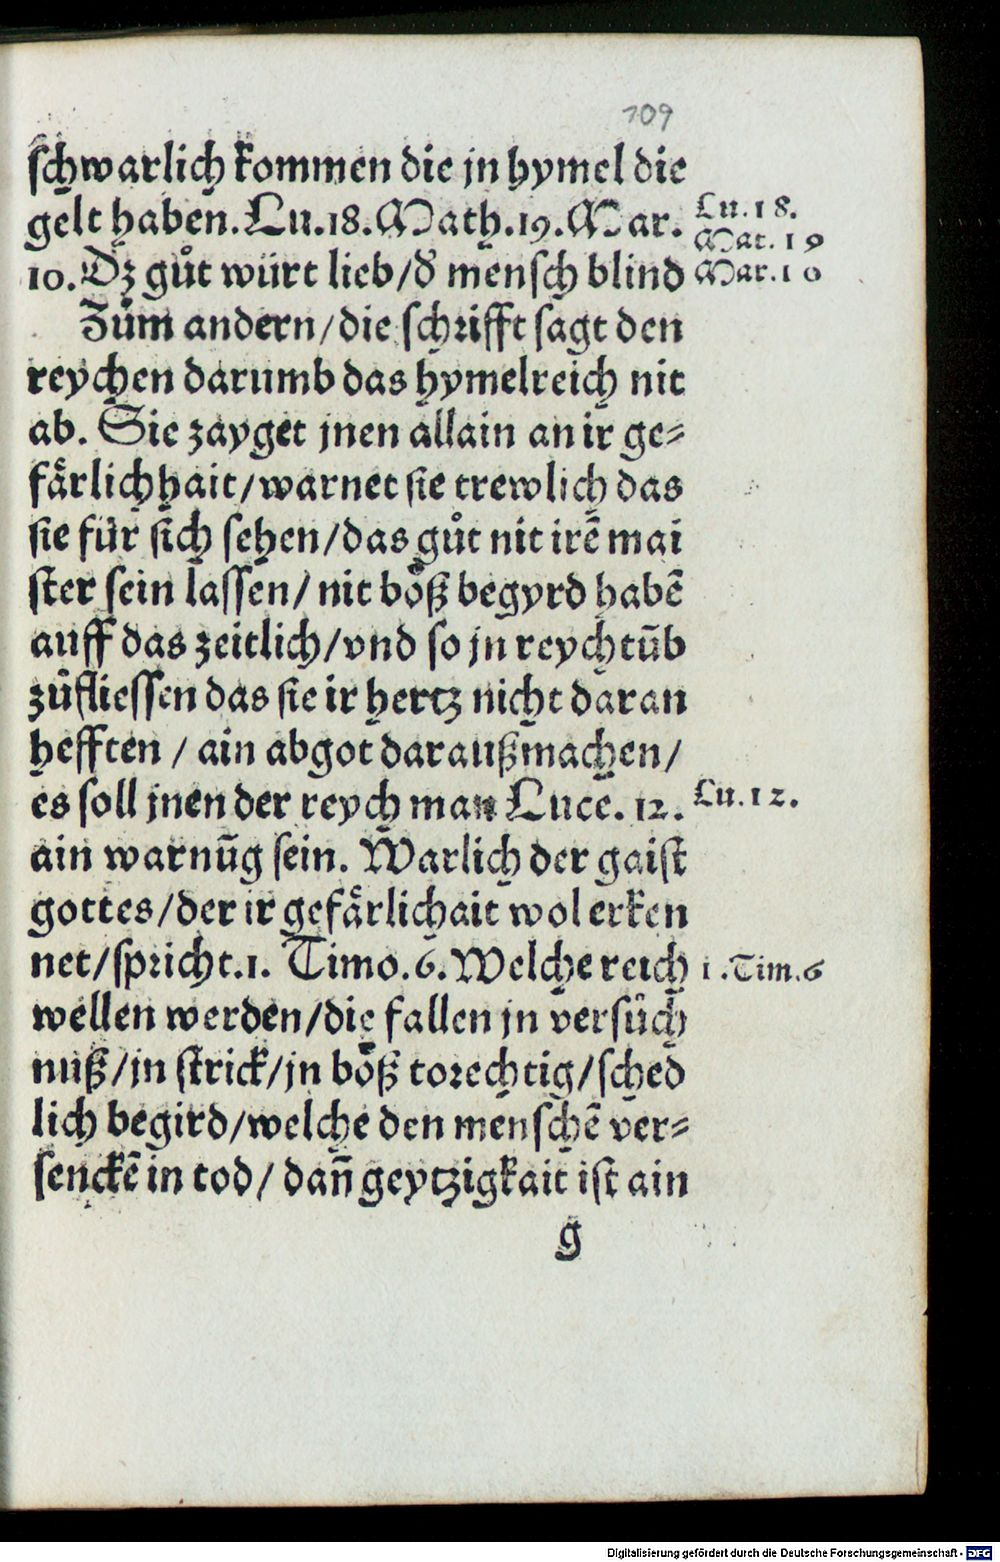 109
schwarlich kommen die jn hymel die
gelt haben. Lu. 18. Math. 19. Mar.
Lu. 18.
Mat. 19
10. Dz gůt würt lieb/ď mensch blind
Mar. 10
Zům andern/die schrifft sagt den
reychen darumb das hymelreich nit
ab. Sie zayget jnen allain an ir ge⸗
fårlichhait/warnet sie trewlich das
sie für sich sehen/das gůt nit irē mai
ster sein lassen/ nit bőß begyrd habē
auff das zeitlich/vnd so jn reychtūb
zůfliessen das sie ir hertz nicht daran
hefften / ain abgot daraußmachen/
es soll jnen der reych man Luce. 12.
Lu. 12.
ain warnūg sein. Warlich der gaist
gottes/der ir gefårlichait wol erken
net/spricht. 1. Timo. 6. Welche reich
1. Tim. 6
wellen werden/die fallen jn versůch
nuß/jn strick/jn bőß torechtig/sched
lich begird/welche den menschē ver⸗
senckē in tod/ dañ geytzigkait ist ain
g
Digitalisierung gefördert durch die Deutsche Forschungsgemeinschaft - DFG